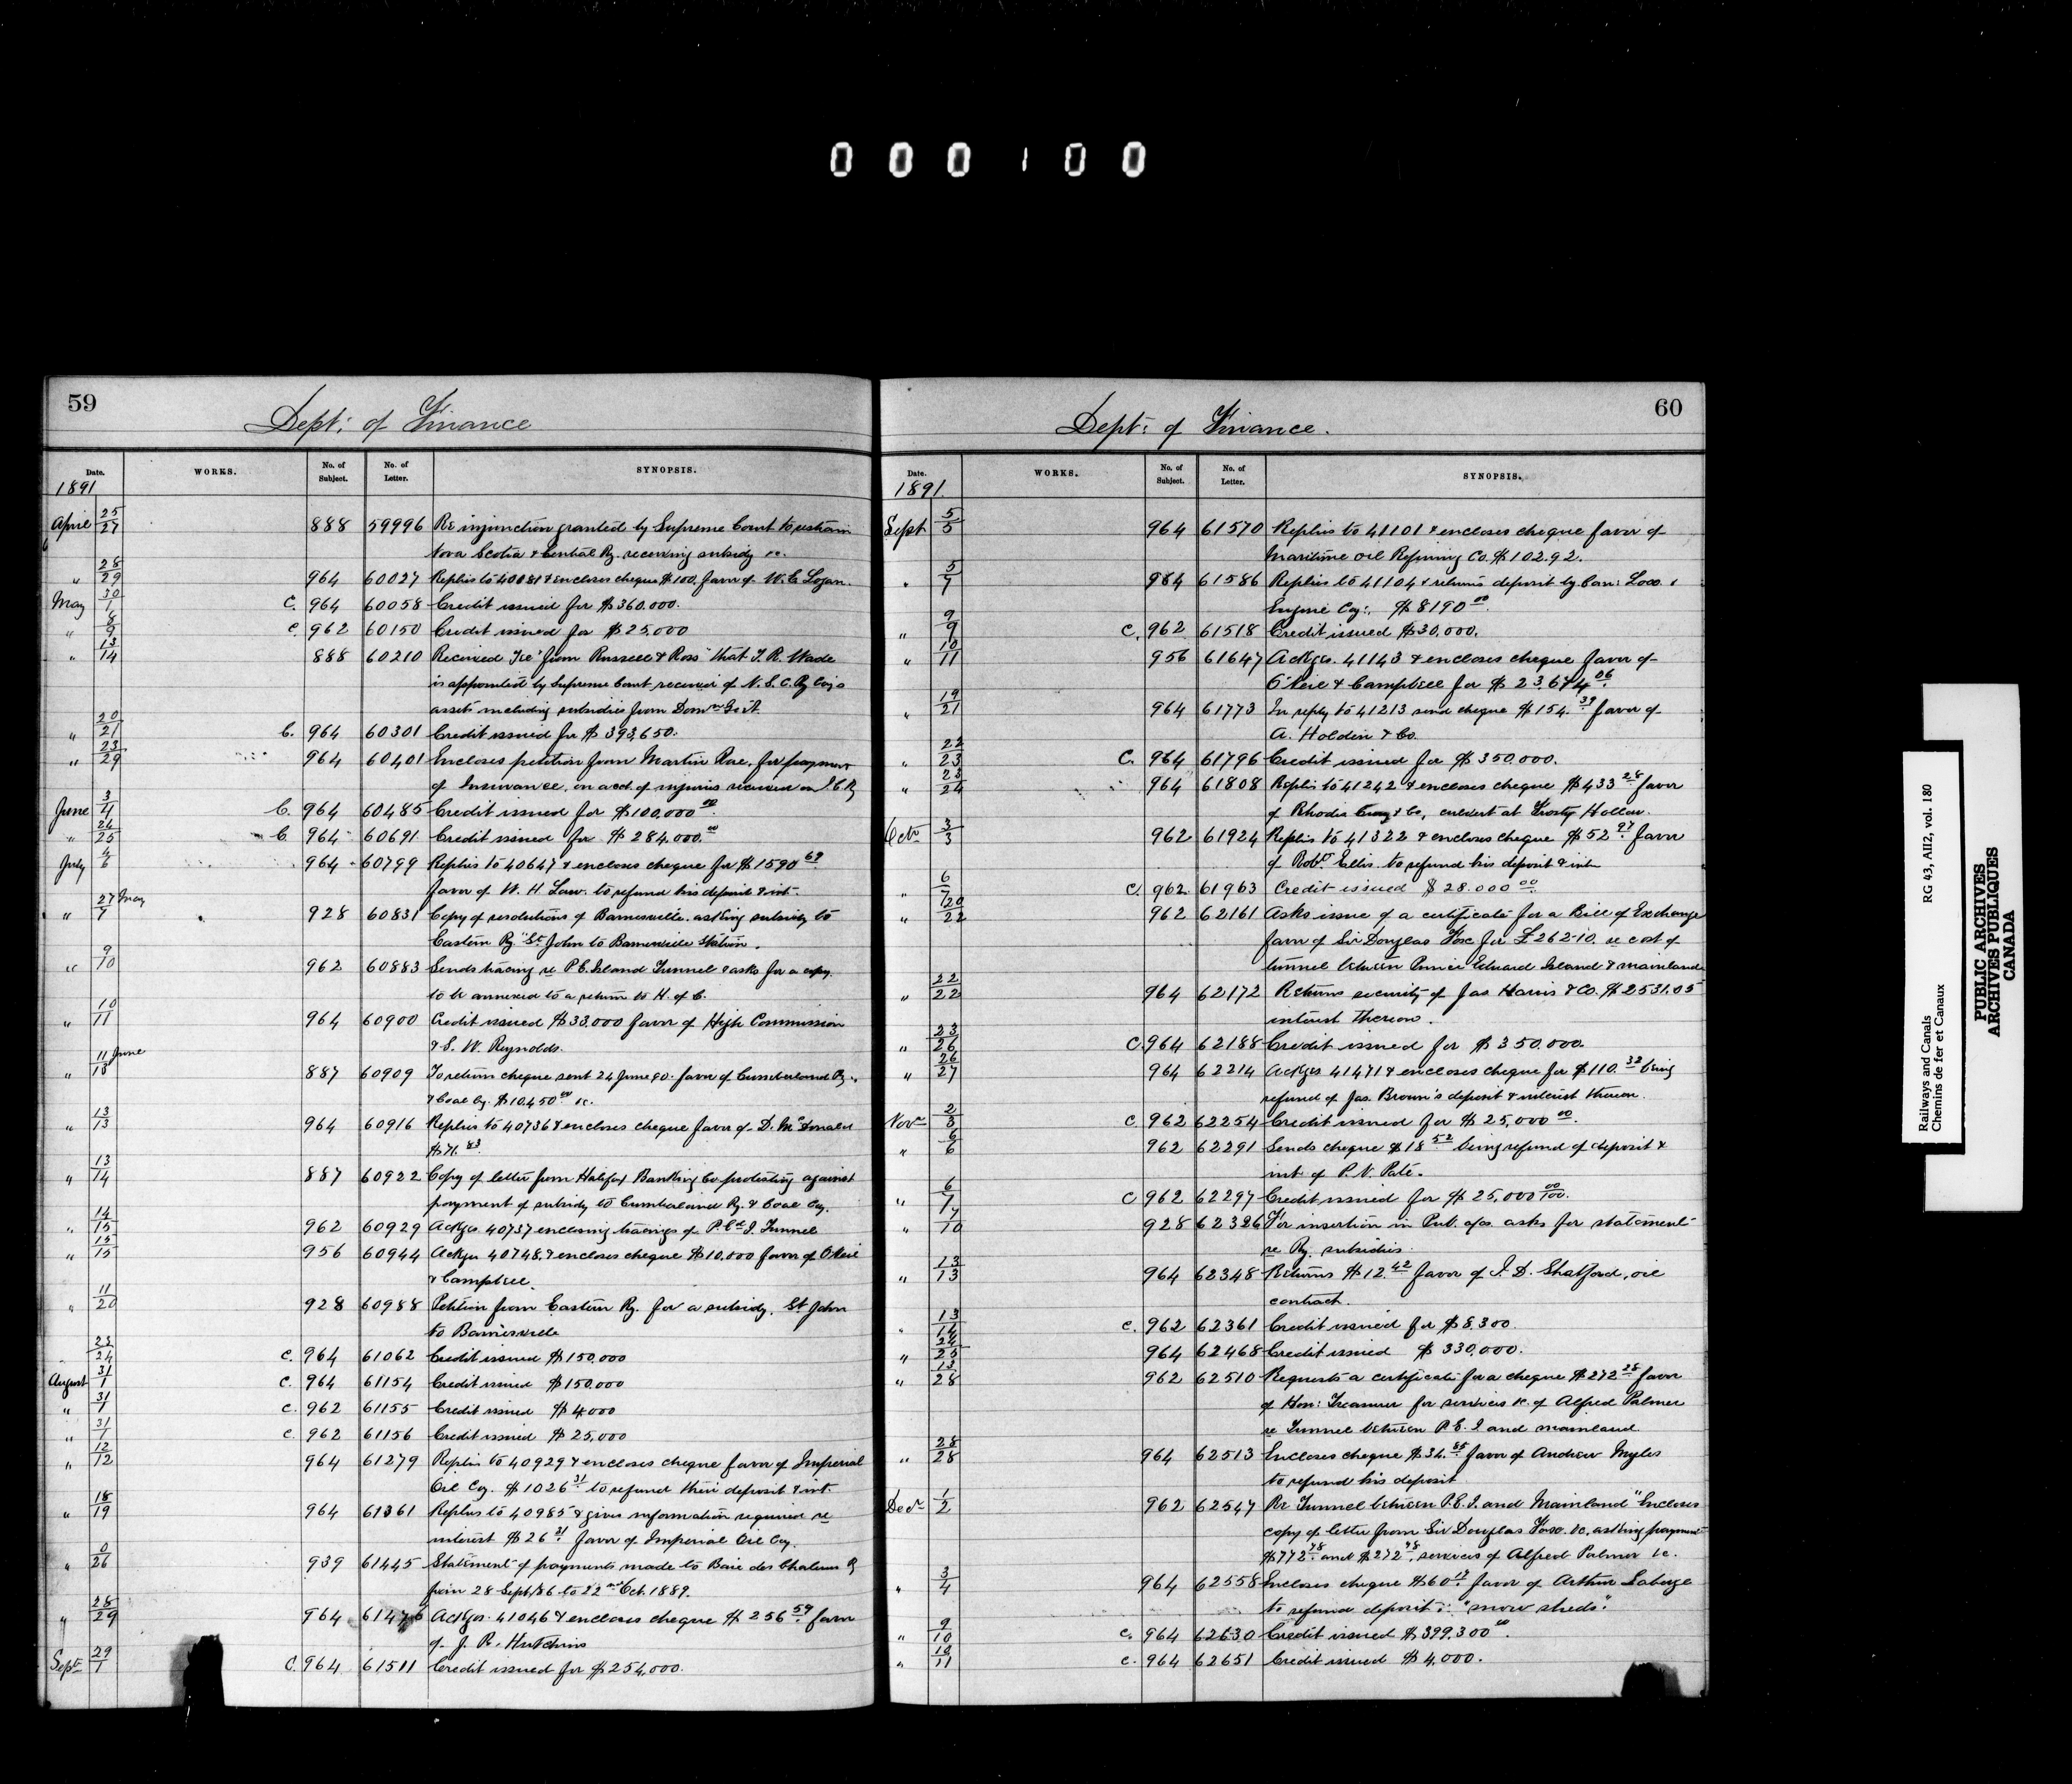 000100
59
Dept: of Finance
Date. WORKS. No. of Subject. No. of Letter. SYNOPSIS.
1891
April 25/27 888 59996 Re injunction granted by Supreme Court to restrain
Nova Scotia & Central Ry. receiving subsidy &c.
" 28/29 964 60027 Replies to 40081 & encloses cheque $100. favor of W. C. Logan.
May 30/1 C. 964 60058 Credit issued for $360.000.
" 8/9 C. 962 60150 Credit issued for $25.000
" 13/14 888 60210 Received Tel from Russell & Ross "that T. R. Wade
is appointed by Supreme Court receiver of N. S. C. Ry Coy's
assets including subsidies from Domn Govt.
" 20/21 C. 964 60301 Credit issued for $393,650.
" 23/29 964 60401 Encloses petition from Martin for payment
of Insurance, on acct. of injuries received on I. C. Ry
June 3/4 C. 964 60485 Credit issued for $100,000 00.
" 24/25 C. 964 60691 Credit issued for $284,000.00
July 4/6 964 60799 Replies to 40647 & encloses cheque for $1590 69
favor of W. H. Law. to refund his deposit & int.
" 27 May/7 928 60831 Copy of resolutions of Barnesville. asking subsidy to
Eastern Ry. "St John to Barnesville Station.
" 9/10 962 60883 Sends tracing re P. E. Island Tunnel & asks for a copy.
to be annexed to a return to H. of C.
" 10/11 964 60900 Credit issued $33.000 favor of High Commission
& S. W. Reynolds.
" 11 June/13 887 60909 To return cheque sent 24 June 90. favor of Cumberland Ry.
& Coal Cy. $10,450 00 &c.
" 13/13 964 60916 Replies to 40736 & encloses cheque favor of D. McDonald
$71.83.
" 13/14 887 60922 Copy of letter from Halifax Banking Co protesting against
payment of subsidy to Cumberland Ry. & Coal Coy.
" 14/15 962 60929 Ackges. 40737 enclosing tracings of P. Ed. I. Tunnel
" 15/15 956 60944 Ackges 40748. & encloses cheque $10.000 favor of O'Neil
& Campbell.
" 11/20 928 60988 Petition from Eastern Ry. for a subsidy. St John
to Barnesville
23/24 C. 964 61062 Credit issued $150,000
August 31/1 C. 964 61154 Credit issued $150,000
" 31/1 C. 962 61155 Credit issued $4,000
" 31/1 C. 962 61156 Credit issued $25,000
" 12/12 964 61279 Replies to 40929 & encloses cheque favor of Imperial
Oil Coy. $1026 31 to refund their deposit & int.
" 18/19 964 61361 Replies to 40985 & gives information required re
interest $26 31 favor of Imperial Oil Coy.
" 0/26 939 61445 Statement of payments made to Baie des Chaleurs Ry
from 28 Sept/86 to 22nd Oct. 1889.
" 28/29 964 61476 Ackges. 41046 & encloses cheque $256 59 favor
of J. R. Hutchins
Sept 29/1 C. 964 61511 Credit issued for $254,000.
60
Dept: of Finance.
Date. WORKS. No. of Subject. No. of Letter. SYNOPSIS.
1891.
Sept 5/5 964 61570 Replies to 41101 & encloses cheque favor of
Maritime Oil Refining Co. $102.92.
" 5/7 964 61586 Replies to 41104 & returns deposit by Can: Loco. &
Engine Coy:. $8190 00.
" 9/9 C. 962 61518 Credit issued $30,000.
" 10/11 956 61647 Ackges. 41143 & encloses cheque favor of
O'Neil & Campbell for $23,674 06
" 19/21 964 61773 In reply to 41213 send cheque $154.39 favor of
A. Holden & Co.
" 22/23 C. 964 61796 Credit issued for $350,000.
" 23/24 964 61808 Replies to 41242 & encloses cheque $433 28 favor
of Rhodes Curry & Co, culvert at Frosty Hollow.
Octr 3/3 962 61924 Replies to 41322 & encloses cheque $52 97 favor
of Robt Ellis. to refund his deposit & int.
" 6/7 C. 962 61963 Credit issued $28.000 00.
" 20/22 962 62161 Asks issue of a certificate for a Bill of Exchange
favor of Sir Douglas Fox for £262-10. re cost of
tunnel between Prince Edward Island & mainland.
" 22/22 964 62172 Returns security of Jas Harris & Co. $2531.05
interest thereon.
" 23/26 C. 964 62188 Credit issued for $350.000.
" 26/27 964 62214 Ackges 41471 & encloses cheque for $110.32 being
refund of Jas. Brown's deposit & interest thereon.
Novr 2/3 C 962 62254 Credit issued for $25,000 00.
" 6/6 962 62291 Sends cheque $18 52 being refund of deposit &
int of P. V. Paté.
" 6/7 C 962 62297 Credit issued for $25,000 00/100.
" 7/10 928 62326 For insertion in Pub. a/cs. asks for statement
re Ry. subsidies.
" 13/13 964 62348 Returns $12.42 favor of I. D. Shatford, oil
contract.
" 13/14 C. 962 62361 Credit issued for $8.300
" 24/25 964 62468 Credit issued $330,000.
" 13/28 962 62510 Requests a certificate for a cheque $272 28 favor
of Hon: Treasurer for services &c. of Alfred Palmer
re Tunnel between P. E. I and mainland.
" 28/28 964 62513 Encloses cheque $34.85 favor of Andrew Myles
to refund his deposit
Decr 1/2 962 62547 Re Tunnel between P. E. I. and Mainland "Encloses
copy of letter from Sir Douglas Fox. &c. asking payment
$772 78 and $272 78. services of Alfred Palmer &c.
" 3/4 964 62558 Encloses cheque $60 17 favor of Arthur Laberge
to refund deposit: "snow sheds".
" 9/10 C. 964 62630 Credit issued $399,300 00.
" 10/11 C. 964 62651 Credit issued $4,000.
Railways and Canals RG 43, AII2, vol. 180
Chemins de fer et Canaux
PUBLIC ARCHIVES
ARCHIVES PUBLIQUES
CANADA